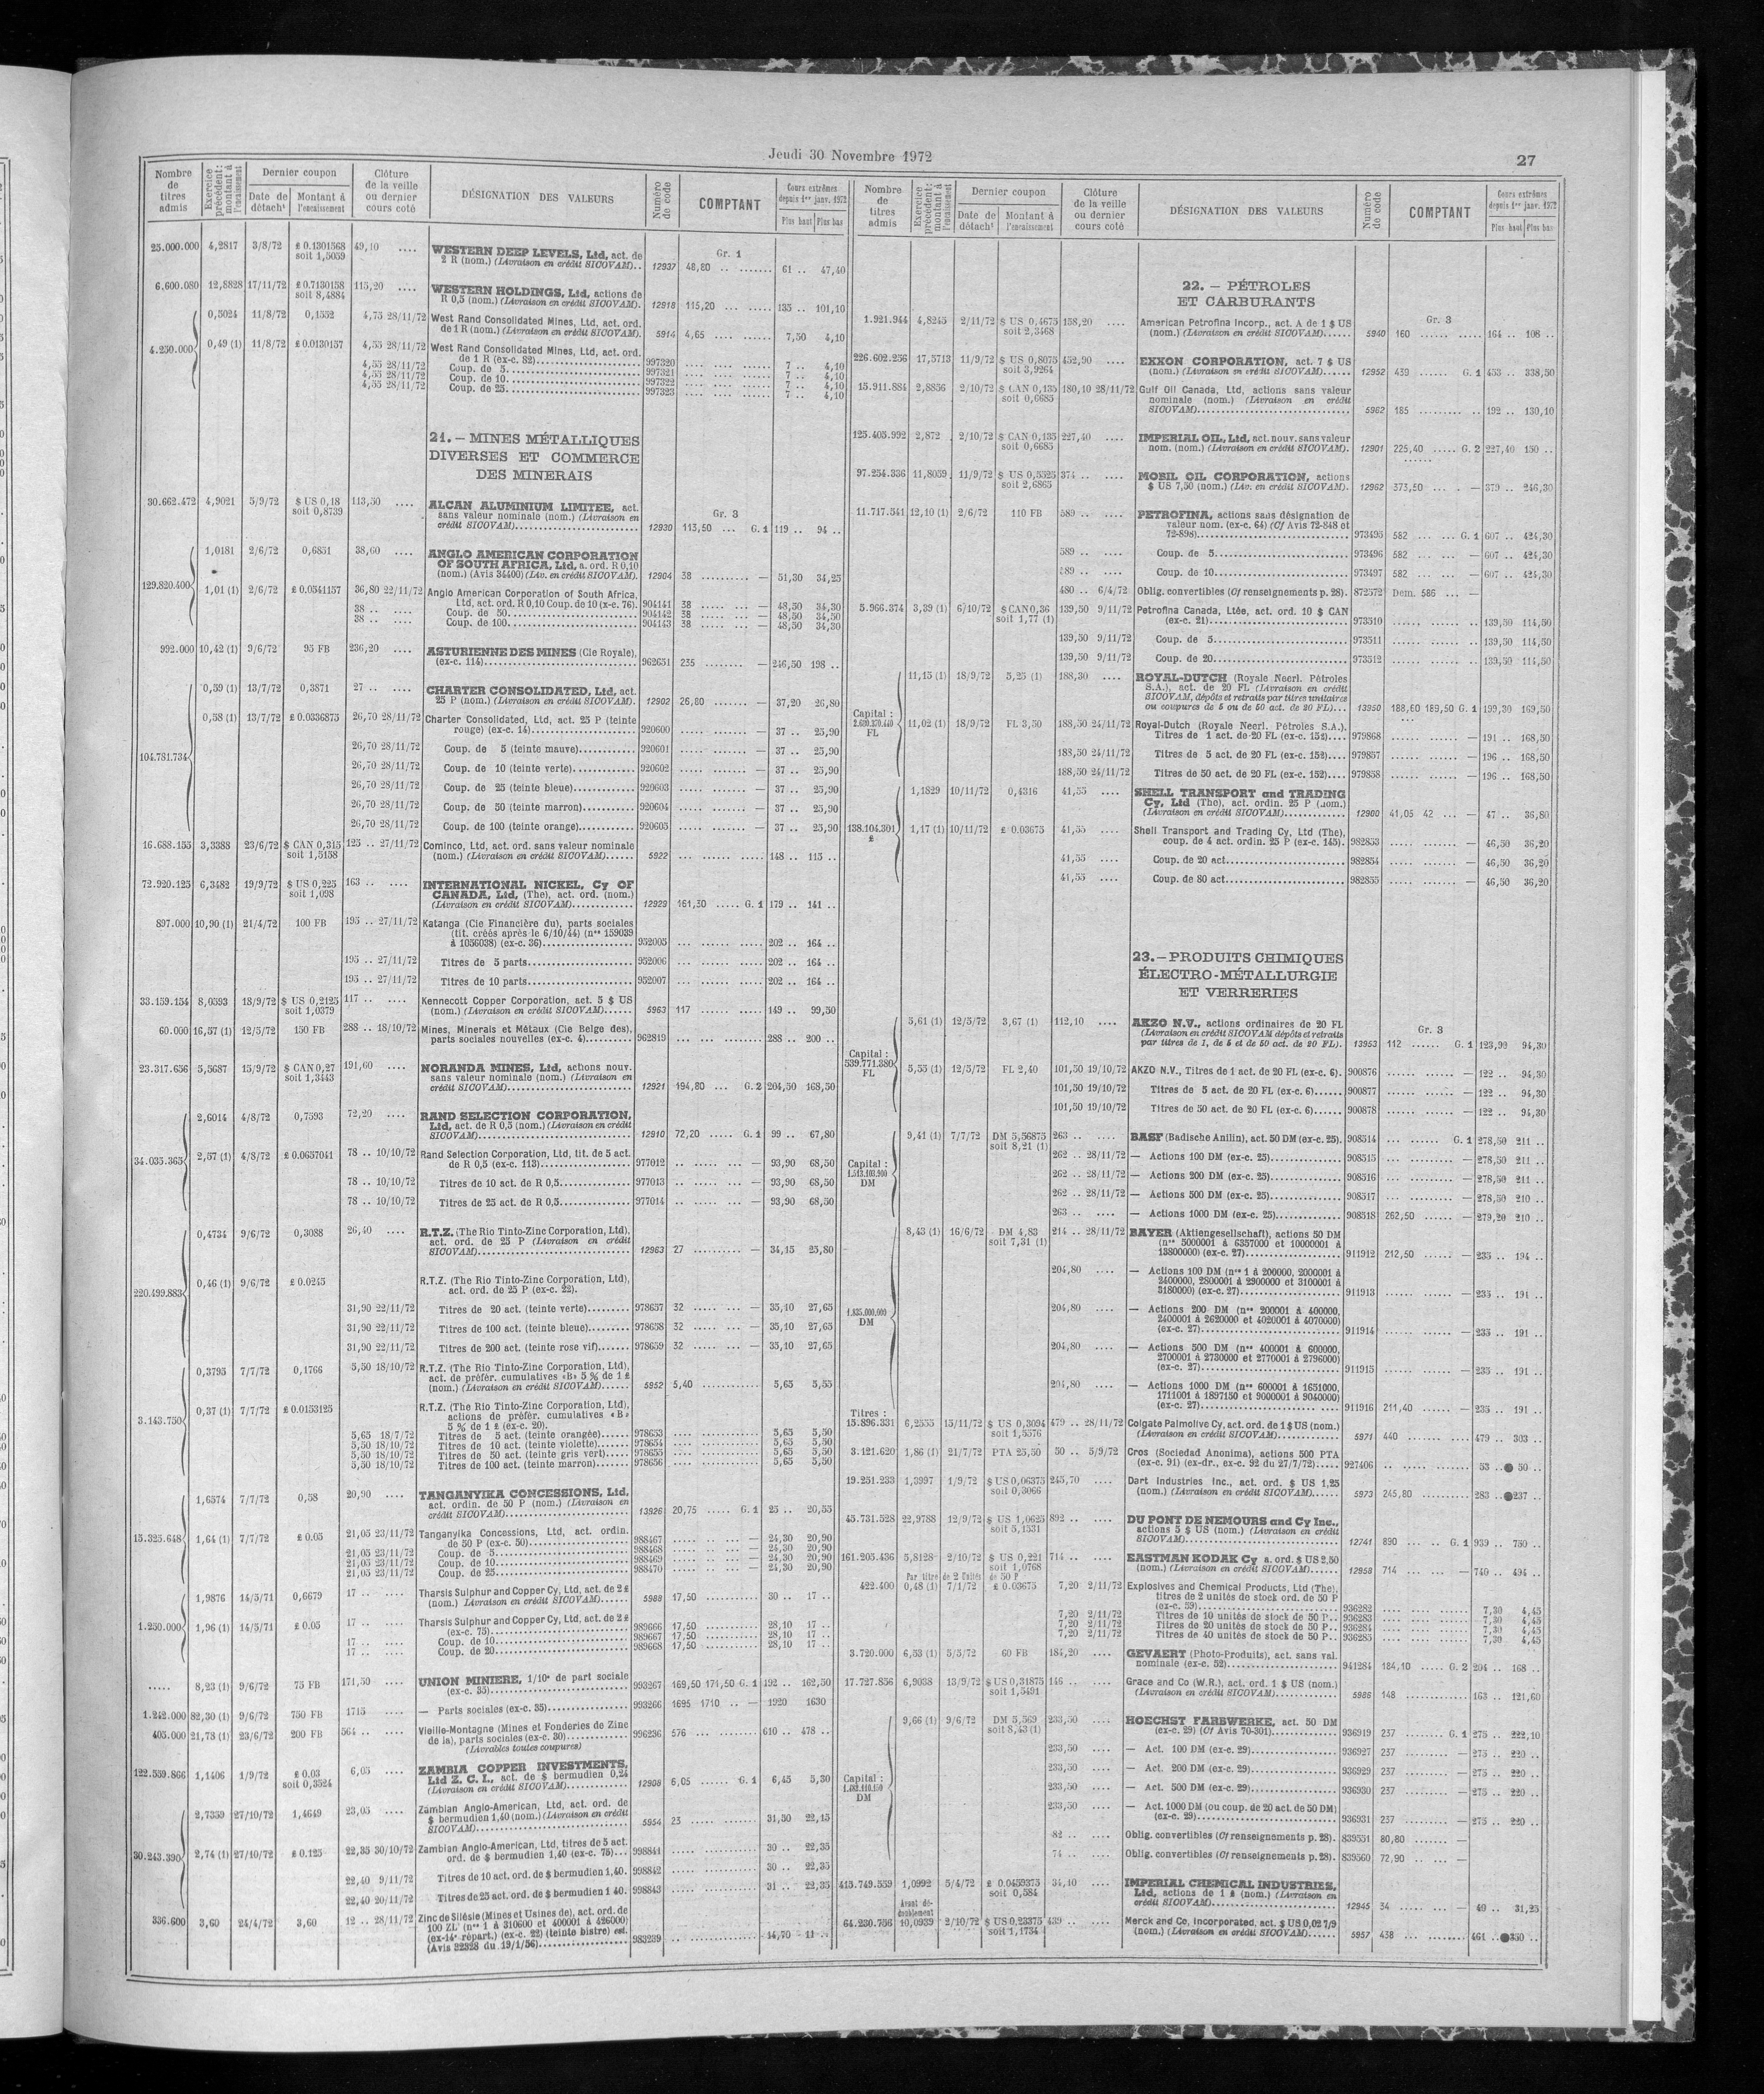 Jeudi 30 Novembre 1972
27
Nombre de titres admis
Exercice précédent: montant à l'encaissement
Dernier coupon
Date de détacht
Montant à l'encaissement
Clôture de la veille ou dernier cours coté
DÉSIGNATION DES VALEURS
Numéro de code
COMPTANT
Cours extrêmes depuis 1er janv. 1972
Plus haut Plus bas
Gr. 1
25.000.000 4,2817 3/8/72 £ 0.1301568 soit 1,5059 49,10 .... WESTERN DEEP LEVELS, Ltd, act. de
2 R (nom.) (Livraison en crédit SICOVAM).. 12937 48,80 61 .. 47,40
6.600.080 12,8828 17/11/72 £ 0.7130158 soit 8,4884 115,20 .... WESTERN HOLDINGS, Ltd, actions de
R 0,5 (nom.) (Livraison en crédit SICOVAM). 12918 115,20 135 .. 101,10
4.250.000
0,5024 11/8/72 0,1552 4,75 28/11/72 West Rand Consolidated Mines, Ltd, act. ord.
de 1 R (nom.) (Livraison en crédit SICOVAM). 5914 4,65 7,50 4,10
0,49 (1) 11/8/72 £ 0.0130157 4,55 28/11/72 West Rand Consolidated Mines, Ltd, act. ord.
de 1 R (ex-c. 82) 997320 7 .. 4,10
4,55 28/11/72 Coup. de 5 997321 7 .. 4,10
4,55 28/11/72 Coup. de 10 997322 7 .. 4,10
4,55 28/11/72 Coup. de 25 997323 7 .. 4,10
21. – MINES MÉTALLIQUES
DIVERSES ET COMMERCE
DES MINERAIS
Gr. 3
30.662.472 4,9021 5/9/72 $ US 0,18 soit 0,8739 113,50 .... ALCAN ALUMINIUM LIMITEE, act.
sans valeur nominale (nom.) (Livraison en
crédit SICOVAM) 12939 113,50 ... G. 1 119 .. 94 ..
129.820.400
1,0181 2/6/72 0,6851 38,60 .... ANGLO AMERICAN CORPORATION
OF SOUTH AFRICA, Ltd, a. ord. R 0,10
(nom.) (Avis 34400) (Liv. en crédit SICOVAM). 12904 38 — 51,30 34,25
1,01 (1) 2/6/72 £ 0.0341157 36,80 22/11/72 Anglo American Corporation of South Africa,
Ltd, act. ord. R 0,10 Coup. de 10 (x-c. 76). 904141 38 — 48,50 34,30
38 .. .... Coup. de 50 904142 38 — 48,50 34,50
38 .. .... Coup. de 100 904143 38 — 48,50 34,30
992.000 10,42 (1) 9/6/72 95 FB 236,20 .... ASTURIENNE DES MINES (Cie Royale),
(ex-c. 114) 962651 235 — 246,50 198 ..
104.781.734
0,59 (1) 13/7/72 0,3871 27 .. .... CHARTER CONSOLIDATED, Ltd, act.
25 P (nom.) (Livraison en crédit SICOVAM).. 12902 26,80 — 37,20 26,80
0,58 (1) 13/7/72 £ 0.0336875 26,70 28/11/72 Charter Consolidated, Ltd, act. 25 P (teinte
rouge) (ex-c. 14) 920600 — 37 .. 25,90
26,70 28/11/72 Coup. de 5 (teinte mauve) 920601 — 37 .. 25,90
26,70 28/11/72 Coup. de 10 (teinte verte) 920602 — 37 .. 25,90
26,70 28/11/72 Coup. de 25 (teinte bleue) 920603 — 37 .. 25,90
26,70 28/11/72 Coup. de 50 (teinte marron) 920604 — 37 .. 25,90
26,70 28/11/72 Coup. de 100 (teinte orange) 920605 — 37 .. 25,90
16.688.155 3,3388 23/6/72 $ CAN 0,315 soit 1,5158 125 .. 27/11/72 Cominco, Ltd, act. ord. sans valeur nominale
(nom.) (Livraison en crédit SICOVAM) 5922 148 .. 115 ..
72.920.125 6,3482 19/9/72 $ US 0,225 soit 1,098 163 .. .... INTERNATIONAL NICKEL, Cy OF
CANADA, Ltd, (The), act. ord. (nom.)
(Livraison en crédit SICOVAM) 12929 161,30 ..... G. 1 179 .. 141 ..
897.000 10,90 (1) 21/4/72 100 FB 195 .. 27/11/72 Katanga (Cie Financière du), parts sociales
(tit. créés après le 6/10/44) (nos 159039
à 1056038) (ex-c. 36) 952005 202 .. 164 ..
195 .. 27/11/72 Titres de 5 parts 952006 202 .. 164 ..
195 .. 27/11/72 Titres de 10 parts 952007 202 .. 164 ..
33.159.154 8,0593 18/9/72 $ US 0,2125 soit 1,0379 117 .. .... Kennecott Copper Corporation, act. 5 $ US
(nom.) (Livraison en crédit SICOVAM) 5963 117 149 .. 99,50
60.000 16,57 (1) 12/5/72 150 FB 288 .. 18/10/72 Mines, Minerais et Métaux (Cie Belge des),
parts sociales nouvelles (ex-c. 4) 962819 288 .. 200 ..
23.317.656 5,5687 15/9/72 $ CAN 0,27 soit 1,3443 191,60 .... NORANDA MINES, Ltd, actions nouv.
sans valeur nominale (nom.) (Livraison en
crédit SICOVAM) 12921 194,80 ... G. 2 204,50 168,50
34.035.365
2,6014 4/8/72 0,7593 72,20 .... RAND SELECTION CORPORATION,
Ltd, act. de R 0,5 (nom.) (Livraison en crédit
SICOVAM) 12910 72,20 ..... G. 1 99 .. 67,80
2,57 (1) 4/8/72 £ 0.0657041 78 .. 10/10/72 Rand Selection Corporation, Ltd, tit. de 5 act.
de R 0,5 (ex-c. 113) 977012 — 93,90 68,50
78 .. 10/10/72 Titres de 10 act. de R 0,5 977013 — 93,90 68,50
78 .. 10/10/72 Titres de 25 act. de R 0,5 977014 — 93,90 68,50
220.499.883
0,4734 9/6/72 0,3088 26,40 .... R.T.Z. (The Rio Tinto-Zinc Corporation, Ltd),
act. ord. de 25 P (Livraison en crédit
SICOVAM) 12963 27 — 34,15 25,80
0,46 (1) 9/6/72 £ 0.0245 R.T.Z. (The Rio Tinto-Zinc Corporation, Ltd),
act. ord. de 25 P (ex-c. 22).
31,90 22/11/72 Titres de 20 act. (teinte verte) 978657 32 — 35,10 27,65
31,90 22/11/72 Titres de 100 act. (teinte bleue) 978658 32 — 35,10 27,65
31,90 22/11/72 Titres de 200 act. (teinte rose vif) 978659 32 — 35,10 27,65
3.143.750
0,3795 7/7/72 0,1766 5,50 18/10/72 R.T.Z. (The Rio Tinto-Zinc Corporation, Ltd),
act. de préfér. cumulatives «B» 5 % de 1 £
(nom.) (Livraison en crédit SICOVAM) 5952 5,40 5,65 5,55
0,37 (1) 7/7/72 £ 0.0153125 R.T.Z. (The Rio Tinto-Zinc Corporation, Ltd),
actions de préfér. cumulatives «B»
5 % de 1 £ (ex-c. 20).
5,65 18/7/72 Titres de 5 act. (teinte orangée) 978653 5,65 5,50
5,50 18/10/72 Titres de 10 act. (teinte violette) 978654 5,65 5,50
5,50 18/10/72 Titres de 50 act. (teinte gris vert) 978655 5,65 5,50
5,50 18/10/72 Titres de 100 act. (teinte marron) 978656 5,65 5,50
15.325.648
1,6574 7/7/72 0,58 20,90 .... TANGANYIKA CONCESSIONS, Ltd,
act. ordin. de 50 P (nom.) (Livraison en
crédit SICOVAM) 13926 20,75 .... G. 1 25 .. 20,55
1,64 (1) 7/7/72 £ 0.05 21,05 23/11/72 Tanganyika Concessions, Ltd, act. ordin.
de 50 P (ex-c. 50) 988467 — 24,30 20,90
21,05 23/11/72 Coup. de 5 988468 — 24,30 20,90
21,05 23/11/72 Coup. de 10 988469 — 24,30 20,90
21,05 23/11/72 Coup. de 25 988470 — 24,30 20,90
1.250.000
1,9876 14/5/71 0,6679 17 .. .... Tharsis Sulphur and Copper Cy, Ltd, act. de 2 £
(nom.) (Livraison en crédit SICOVAM) 5988 17,50 30 .. 17 ..
1,96 (1) 14/5/71 £ 0.05 17 .. .... Tharsis Sulphur and Copper Cy, Ltd, act. de 2 £
(ex-c. 75) 989666 17,50 28,10 17 ..
17 .. .... Coup. de 10 989667 17,50 28,10 17 ..
17 .. .... Coup. de 20 989668 17,50 28,10 17 ..
..... 8,23 (1) 9/6/72 75 FB 171,50 .... UNION MINIERE, 1/10e de part sociale
(ex-c. 35) 993267 169,50 171,50 G. 1 192 .. 162,50
1.242.000 82,30 (1) 9/6/72 750 FB 1715 .... — Parts sociales (ex-c. 35) 993266 1695 1710 .. — 1920 1630
405.000 21,78 (1) 23/6/72 200 FB 564 .. .... Vieille-Montagne (Mines et Fonderies de Zinc
de la), parts sociales (ex-c. 30) 996236 576 610 .. 478 ..
(Livrables toutes coupures)
122.559.866 1,1406 1/9/72 £ 0.03 soit 0,3524 6,05 .... ZAMBIA COPPER INVESTMENTS,
Ltd Z. C. I., act. de $ bermudien 0,24
(Livraison en crédit SICOVAM) 12908 6,05 ...... G. 1 6,45 5,30
30.243.390
2,7359 27/10/72 1,4649 23,05 .... Zambian Anglo-American, Ltd, act. ord. de
$ bermudien 1,40 (nom.) (Livraison en crédit
SICOVAM) 5954 23 31,50 22,15
2,74 (1) 27/10/72 £ 0.125 22,35 30/10/72 Zambian Anglo-American, Ltd, titres de 5 act.
ord. de $ bermudien 1,40 (ex-c. 75) 998841 30 .. 22,35
22,40 9/11/72 Titres de 10 act. ord. de $ bermudien 1,40. 998842 30 .. 22,35
22,40 20/11/72 Titres de 25 act. ord. de $ bermudien 1 40. 998843 31 .. 22,35
336.600 3,60 24/4/72 3,60 12 .. 28/11/72 Zinc de Silésie (Mines et Usines de), act. ord. de
100 ZL (nos 1 à 310600 et 400001 à 426000)
(ex-14e répart.) (ex-c. 22) (teinte bistre) est.
(Avis 22328 du 19/1/56) 983239 14,70 11 ..
Nombre de titres admis
Exercice précédent: montant à l'encaissement
Dernier coupon
Date de détacht
Montant à l'encaissement
Clôture de la veille ou dernier cours coté
DÉSIGNATION DES VALEURS
Numéro de code
COMPTANT
Cours extrêmes depuis 1er janv. 1972
Plus haut Plus bas
22. – PÉTROLES
ET CARBURANTS
Gr. 3
1.921.944 4,8245 2/11/72 $ US 0,4675 soit 2,3468 158,20 .... American Petrofina Incorp., act. A de 1 $ US
(nom.) (Livraison en crédit SICOVAM) 5940 160 164 .. 108 ..
226.602.256 17,5713 11/9/72 $ US 0,8075 soit 3,9264 452,90 .... EXXON CORPORATION, act. 7 $ US
(nom.) (Livraison en crédit SICOVAM) 12952 439 ...... G. 1 453 .. 338,50
15.911.884 2,8856 2/10/72 $ CAN 0,135 soit 0,6685 180,10 28/11/72 Gulf Oil Canada, Ltd, actions sans valeur
nominale (nom.) (Livraison en crédit
SICOVAM) 5962 185 192 .. 130,10
125.405.992 2,872 2/10/72 $ CAN 0,135 soit 0,6685 227,40 .... IMPERIAL OIL, Ltd, act. nouv. sans valeur
nom. (nom.) (Livraison en crédit SICOVAM). 12901 225,40 ..... G. 2 227,40 150 ..
97.254.336 11,8059 11/9/72 $ US 0,5525 soit 2,6865 374 .. .... MOBIL OIL CORPORATION, actions
$ US 7,50 (nom.) (Liv. en crédit SICOVAM). 12962 373,50 — 379 .. 246,30
11.717.541 12,10 (1) 2/6/72 110 FB 589 .. .... PETROFINA, actions sans désignation de
valeur nom. (ex-c. 64) (Cf Avis 72-848 et
72-898) 973495 582 ... ... G. 1 607 .. 424,30
589 .. .... Coup. de 5 973496 582 — 607 .. 424,30
589 .. .... Coup. de 10 973497 582 — 607 .. 424,30
480 .. 6/4/72 Oblig. convertibles (Cf renseignements p. 28). 872572 Dem. 586 ... —
5.966.374 3,39 (1) 6/10/72 $ CAN 0,36 soit 1,77 (1) 139,50 9/11/72 Petrofina Canada, Ltée, act. ord. 10 $ CAN
(ex-c. 21) 973510 139,50 114,50
139,50 9/11/72 Coup. de 5 973511 139,50 114,50
139,50 9/11/72 Coup. de 20 973512 139,50 114,50
Capital :
FL
11,15 (1) 18/9/72 5,25 (1) 188,30 .... ROYAL-DUTCH (Royale Neerl. Pétroles
S.A.), act. de 20 FL (Livraison en crédit
SICOVAM, dépôts et retraits par titres unitaires
ou coupures de 5 ou de 50 act. de 20 FL) 13950 188,60 189,50 G. 1 199,30 169,50
11,02 (1) 18/9/72 FL 3,50 188,50 24/11/72 Royal-Dutch (Royale Neerl. Pétroles S.A.),
Titres de 1 act. de 20 FL (ex-c. 152) 979868 — 191 .. 168,50
188,50 24/11/72 Titres de 5 act. de 20 FL (ex-c. 152) 979857 — 196 .. 168,50
188,50 24/11/72 Titres de 50 act. de 20 FL (ex-c. 152) 979858 — 196 .. 168,50
138.104.301 £
1,1829 10/11/72 0,4316 41,55 .... SHELL TRANSPORT and TRADING
Cy, Ltd (The), act. ordin. 25 P (nom.)
(Livraison en crédit SICOVAM) 12900 41,05 42 ... — 47 .. 36,80
1,17 (1) 10/11/72 £ 0.03675 41,55 .... Shell Transport and Trading Cy, Ltd (The),
coup. de 4 act. ordin. 25 P (ex-c. 145). 982853 — 46,50 36,20
41,55 .... Coup. de 20 act. 982854 — 46,50 36,20
41,55 .... Coup. de 80 act. 982855 — 46,50 36,20
23. – PRODUITS CHIMIQUES
ÉLECTRO-MÉTALLURGIE
ET VERRERIES
Gr. 3
Capital :
539.771.380
FL
5,61 (1) 12/5/72 3,67 (1) 112,10 .... AKZO N.V., actions ordinaires de 20 FL
(Livraison en crédit SICOVAM dépôts et retraits
par titres de 1, de 5 et de 50 act. de 20 FL). 13953 112 ...... G. 1 123,90 94,30
5,55 (1) 12/5/72 FL 2,40 101,50 19/10/72 AKZO N.V., Titres de 1 act. de 20 FL (ex-c. 6). 900876 — 122 .. 94,30
101,50 19/10/72 Titres de 5 act. de 20 FL (ex-c. 6) 900877 — 122 .. 94,30
101,50 19/10/72 Titres de 50 act. de 20 FL (ex-c. 6) 900878 — 122 .. 94,30
Capital :
DM
9,41 (1) 7/7/72 DM 5,56875 soit 8,21 (1) 263 .. .... BASF (Badische Anilin), act. 50 DM (ex-c. 25). 908514 G. 1 278,50 211 ..
262 .. 28/11/72 — Actions 100 DM (ex-c. 25) 908515 — 278,50 211 ..
262 .. 28/11/72 — Actions 200 DM (ex-c. 25) 908516 — 278,50 211 ..
262 .. 28/11/72 — Actions 500 DM (ex-c. 25) 908517 — 278,50 210 ..
263 .. .... — Actions 1000 DM (ex-c. 25) 908518 262,50 — 279,20 210 ..
1.835.000.000
DM
8,43 (1) 16/6/72 DM 4,83 soit 7,31 (1) 214 .. 28/11/72 BAYER (Aktiengesellschaft), actions 50 DM
(nos 5000001 à 6357000 et 10000001 à
13800000) (ex-c. 27) 911912 212,50 — 235 .. 194 ..
204,80 .... — Actions 100 DM (nos 1 à 200000, 2000001 à
2400000, 2800001 à 2900000 et 3100001 à
3180000) (ex-c. 27) 911913 — 235 .. 191 ..
204,80 .... — Actions 200 DM (nos 200001 à 400000,
2400001 à 2620000 et 4020001 à 4070000)
(ex-c. 27) 911914 — 235 .. 191 ..
204,80 .... — Actions 500 DM (nos 400001 à 600000,
2700001 à 2730000 et 2770001 à 2796000)
(ex-c. 27) 911915 — 235 .. 191 ..
204,80 .... — Actions 1000 DM (nos 600001 à 1651000,
1711001 à 1897150 et 9000001 à 9040000)
(ex-c. 27) 911916 211,40 — 235 .. 191 ..
Titres :
15.896.331 6,2555 15/11/72 $ US 0,3094 soit 1,5576 479 .. 28/11/72 Colgate Palmolive Cy, act. ord. de 1 $ US (nom.)
(Livraison en crédit SICOVAM) 5971 440 479 .. 303 ..
3.121.620 1,86 (1) 21/7/72 PTA 25,50 50 .. 5/9/72 Cros (Sociedad Anonima), actions 500 PTA
(ex-c. 91) (ex-dr., ex-c. 92 du 27/7/72) 927406 53 .. ● 50 ..
19.251.233 1,3997 1/9/72 $ US 0,06375 soit 0,3066 245,70 .... Dart Industries Inc., act. ord. $ US 1,25
(nom.) (Livraison en crédit SICOVAM) 5973 245,80 283 .. ●237 ..
45.731.528 22,9788 12/9/72 $ US 1,0625 soit 5,1531 892 .. .... DU PONT DE NEMOURS and Cy Inc.,
actions 5 $ US (nom.) (Livraison en crédit
SICOVAM) 12741 890 ... .. G. 1 939 .. 750 ..
161.205.436 5,8128 2/10/72 $ US 0,221 soit 1,0768 714 .. .... EASTMAN KODAK Cy a. ord. $ US 2,50
(nom.) (Livraison en crédit SICOVAM) 12958 714 — 740 .. 494 ..
Par titre de 2 Unités de 50 P
422.400 0,48 (1) 7/1/72 £ 0.03675 7,20 2/11/72 Explosives and Chemical Products, Ltd (The),
titres de 2 unités de stock ord. de 50 P
(ex-c. 59) 936282 7,30 4,45
7,20 2/11/72 Titres de 10 unités de stock de 50 P.. 936283 7,30 4,45
7,20 2/11/72 Titres de 20 unités de stock de 50 P.. 936284 7,30 4,45
7,20 2/11/72 Titres de 40 unités de stock de 50 P.. 936285 7,30 4,45
3.720.000 6,53 (1) 5/5/72 60 FB 184,20 .... GEVAERT (Photo-Produits), act. sans val.
nominale (ex-c. 52) 941284 184,10 ..... G. 2 204 .. 168 ..
17.727.856 6,9038 13/9/72 $ US 0,31875 soit 1,5491 146 .. .... Grace and Co (W.R.), act. ord. 1 $ US (nom.)
(Livraison en crédit SICOVAM) 5986 148 163 .. 121,60
Capital :
DM
9,66 (1) 9/6/72 DM 5,569 soit 8,43 (1) 233,50 .... HOECHST FARBWERKE, act. 50 DM
(ex-c. 29) (Cf Avis 70-301) 936919 237 ...... G. 1 275 .. 222,10
233,50 .... — Act. 100 DM (ex-c. 29) 936927 237 — 275 .. 220 ..
233,50 .... — Act. 200 DM (ex-c. 29) 936929 237 — 275 .. 220 ..
233,50 .... — Act. 500 DM (ex-c. 29) 936930 237 — 275 .. 220 ..
233,50 .... — Act. 1000 DM (ou coup. de 20 act. de 50 DM)
(ex-c. 29) 936931 237 — 275 .. 220 ..
82 .. .... Oblig. convertibles (Cf renseignements p. 28). 839551 80,80 —
74 .. .... Oblig. convertibles (Cf renseignements p. 28). 839560 72,90 —
415.749.559 1,0992 5/4/72 £ 0.0459375 soit 0,584 34,40 .... IMPERIAL CHEMICAL INDUSTRIES,
Ltd, actions de 1 £ (nom.) (Livraison en
crédit SICOVAM) 12945 34 — 40 .. 31,25
Avant dédoublement
64.230.756 10,0939 2/10/72 $ US 0,23375 soit 1,1734 439 .. .... Merck and Co, Incorporated, act. $ US 0,02 7/9
(nom.) (Livraison en crédit SICOVAM) 5957 438 461 .. ●350 ..